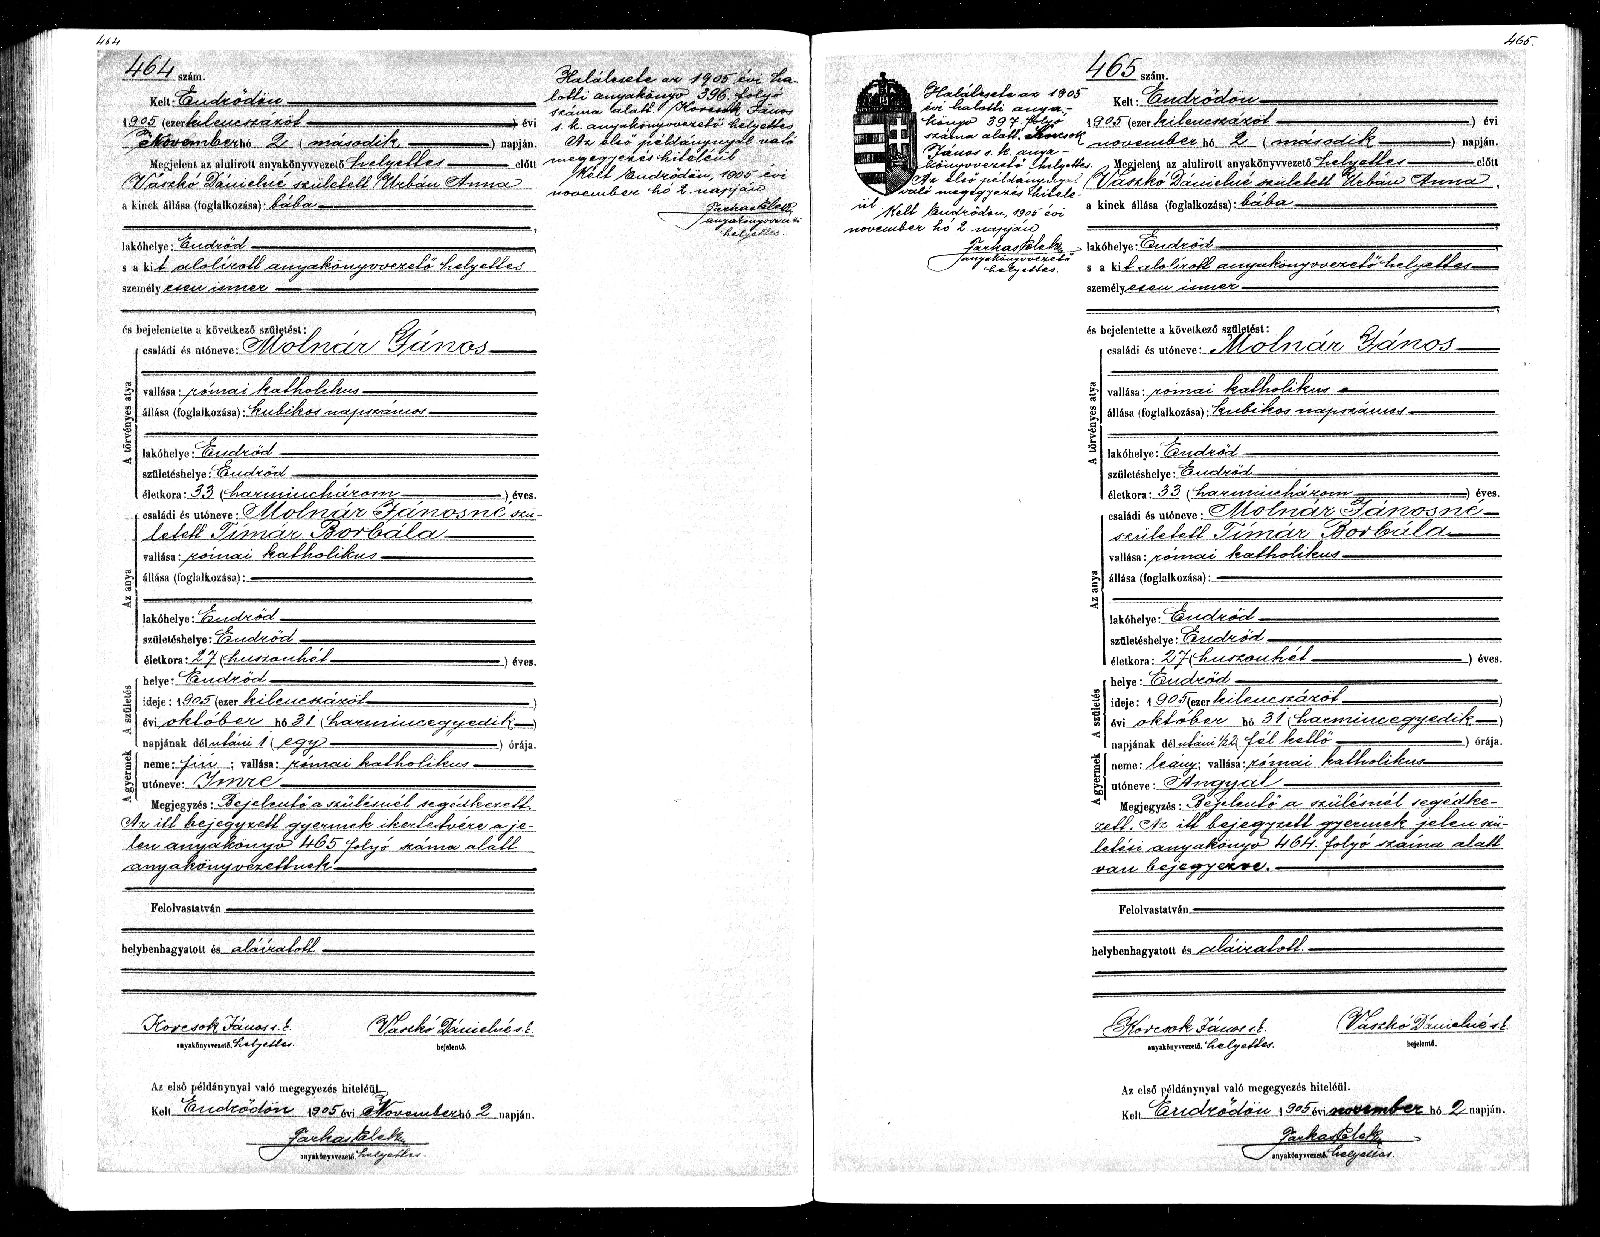 464
464 szám.
Kelt: Endrődön
1905 (ezer kilencszázöt) évi
November hó 2 (második) napján.
Megjelent az alulirott anyakönyvvezető helyettes előtt
Vaszkó Dánielné született Urbán Anna
a kinek állása (foglalkozása): bába
lakóhelye: Endrőd
s a kit alolírott anyakönyvvezető helyettes
személyesen ismer
és bejelentette a következő születést:
A törvényes atya
családi és utóneve: Molnár János
vallása: római katholikus
állása (foglalkozása): kubikos napszámos
lakóhelye: Endrőd
születéshelye: Endrőd
életkora: 33 (harminchárom) éves.
Az anya
családi és utóneve: Molnár Jánosné szü-
letett Tímár Borbála
vallása: római katholikus
állása (foglalkozása):
lakóhelye: Endrőd
születéshelye: Endrőd
életkora: 27 (huszonhét) éves.
A születés
helye: Endrőd
ideje: 1905 (ezer kilencszázöt)
évi október hó 31 (harmincegyedik)
napjának délutáni 1 (egy) órája.
A gyermek
neme: fiú; vallása: római katholikus
utóneve: Imre
Megjegyzés: Bejelentő a szülésnél segédkezett.
Az itt bejegyzett gyermek ikertestvére a je-
len anyakönyv 465 folyó száma alatt
anyakönyvezettnek
Felolvastatván
helybenhagyatott és aláíratott.
Korcsok János s. k. Vaszkó Dánielné s. k.
anyakönyvvezető helyettes. bejelentő.
Az első példánynyal való megegyezés hiteléül.
Kelt Endrődön 1905 évi November hó 2 napján.
Farkas Elek
anyakönyvvezető helyettes.
Halálesete az 1905 évi ha-
lotti anyakönyv 396 folyó
száma alatt Korcsok János
s. k. anyakönyvvezető helyettes
Az első példánynyal való
megegyezés hiteléül
Kelt Endrődön, 1905 évi
november hó 2. napján
Farkas Elek
anyakönyvvezető
helyettes.
465.
465 szám.
Halálesete az 1905
évi halotti anya-
könyv 397 folyó
száma alatt. Korcsok
János s. k. anya-
könyvvezető helyettes.
Az első példánynyal
való megegyezés hitele
ül
Kelt Endrődön, 1905 évi
november hó 2 napján
Farkas Elek
anyakönyvvezető
helyettes.
Kelt: Endrődön
1905 (ezer kilencszázöt) évi
november hó 2 (második) napján.
Megjelent az alulirott anyakönyvvezető helyettes előtt
Vaszkó Dánielné született Urbán Anna,
a kinek állása (foglalkozása): bába
lakóhelye: Endrőd
s a kit alolírott anyakönyvvezető helyettes
személyesen ismer
és bejelentette a következő születést:
A törvényes atya
családi és utóneve: Molnár János
vallása: római katholikus
állása (foglalkozása): kubikos napszámos
lakóhelye: Endrőd
születéshelye: Endrőd
életkora: 33 (harminchárom) éves.
Az anya
családi és utóneve: Molnár Jánosné
született Tímár Borbála
vallása: római katholikus
állása (foglalkozása):
lakóhelye: Endrőd
születéshelye: Endrőd
életkora: 27 (huszonhét) éves.
A születés
helye: Endrőd
ideje: 1905 (ezer kilencszázöt)
évi október hó 31 (harmincegyedik)
napjának délutáni 1/2 2 fél kettő) órája.
A gyermek
neme: leány; vallása: római katholikus
utóneve: Angyal
Megjegyzés: Bejelentő a szülésnél segédke-
zett. Az itt bejegyzett gyermek jelen szü-
letési anyakönyv 464. folyó száma alatt
van bejegyezve.
Felolvastatván
helybenhagyatott és aláíratott.
Korcsok János s. k. Vaszkó Dánielné s. k.
anyakönyvvezető. helyettes. bejelentő.
Az első példánynyal való megegyezés hiteléül.
Kelt Endrődön 1905 évi november hó 2 napján.
Farkas Elek
anyakönyvvezető helyettes.